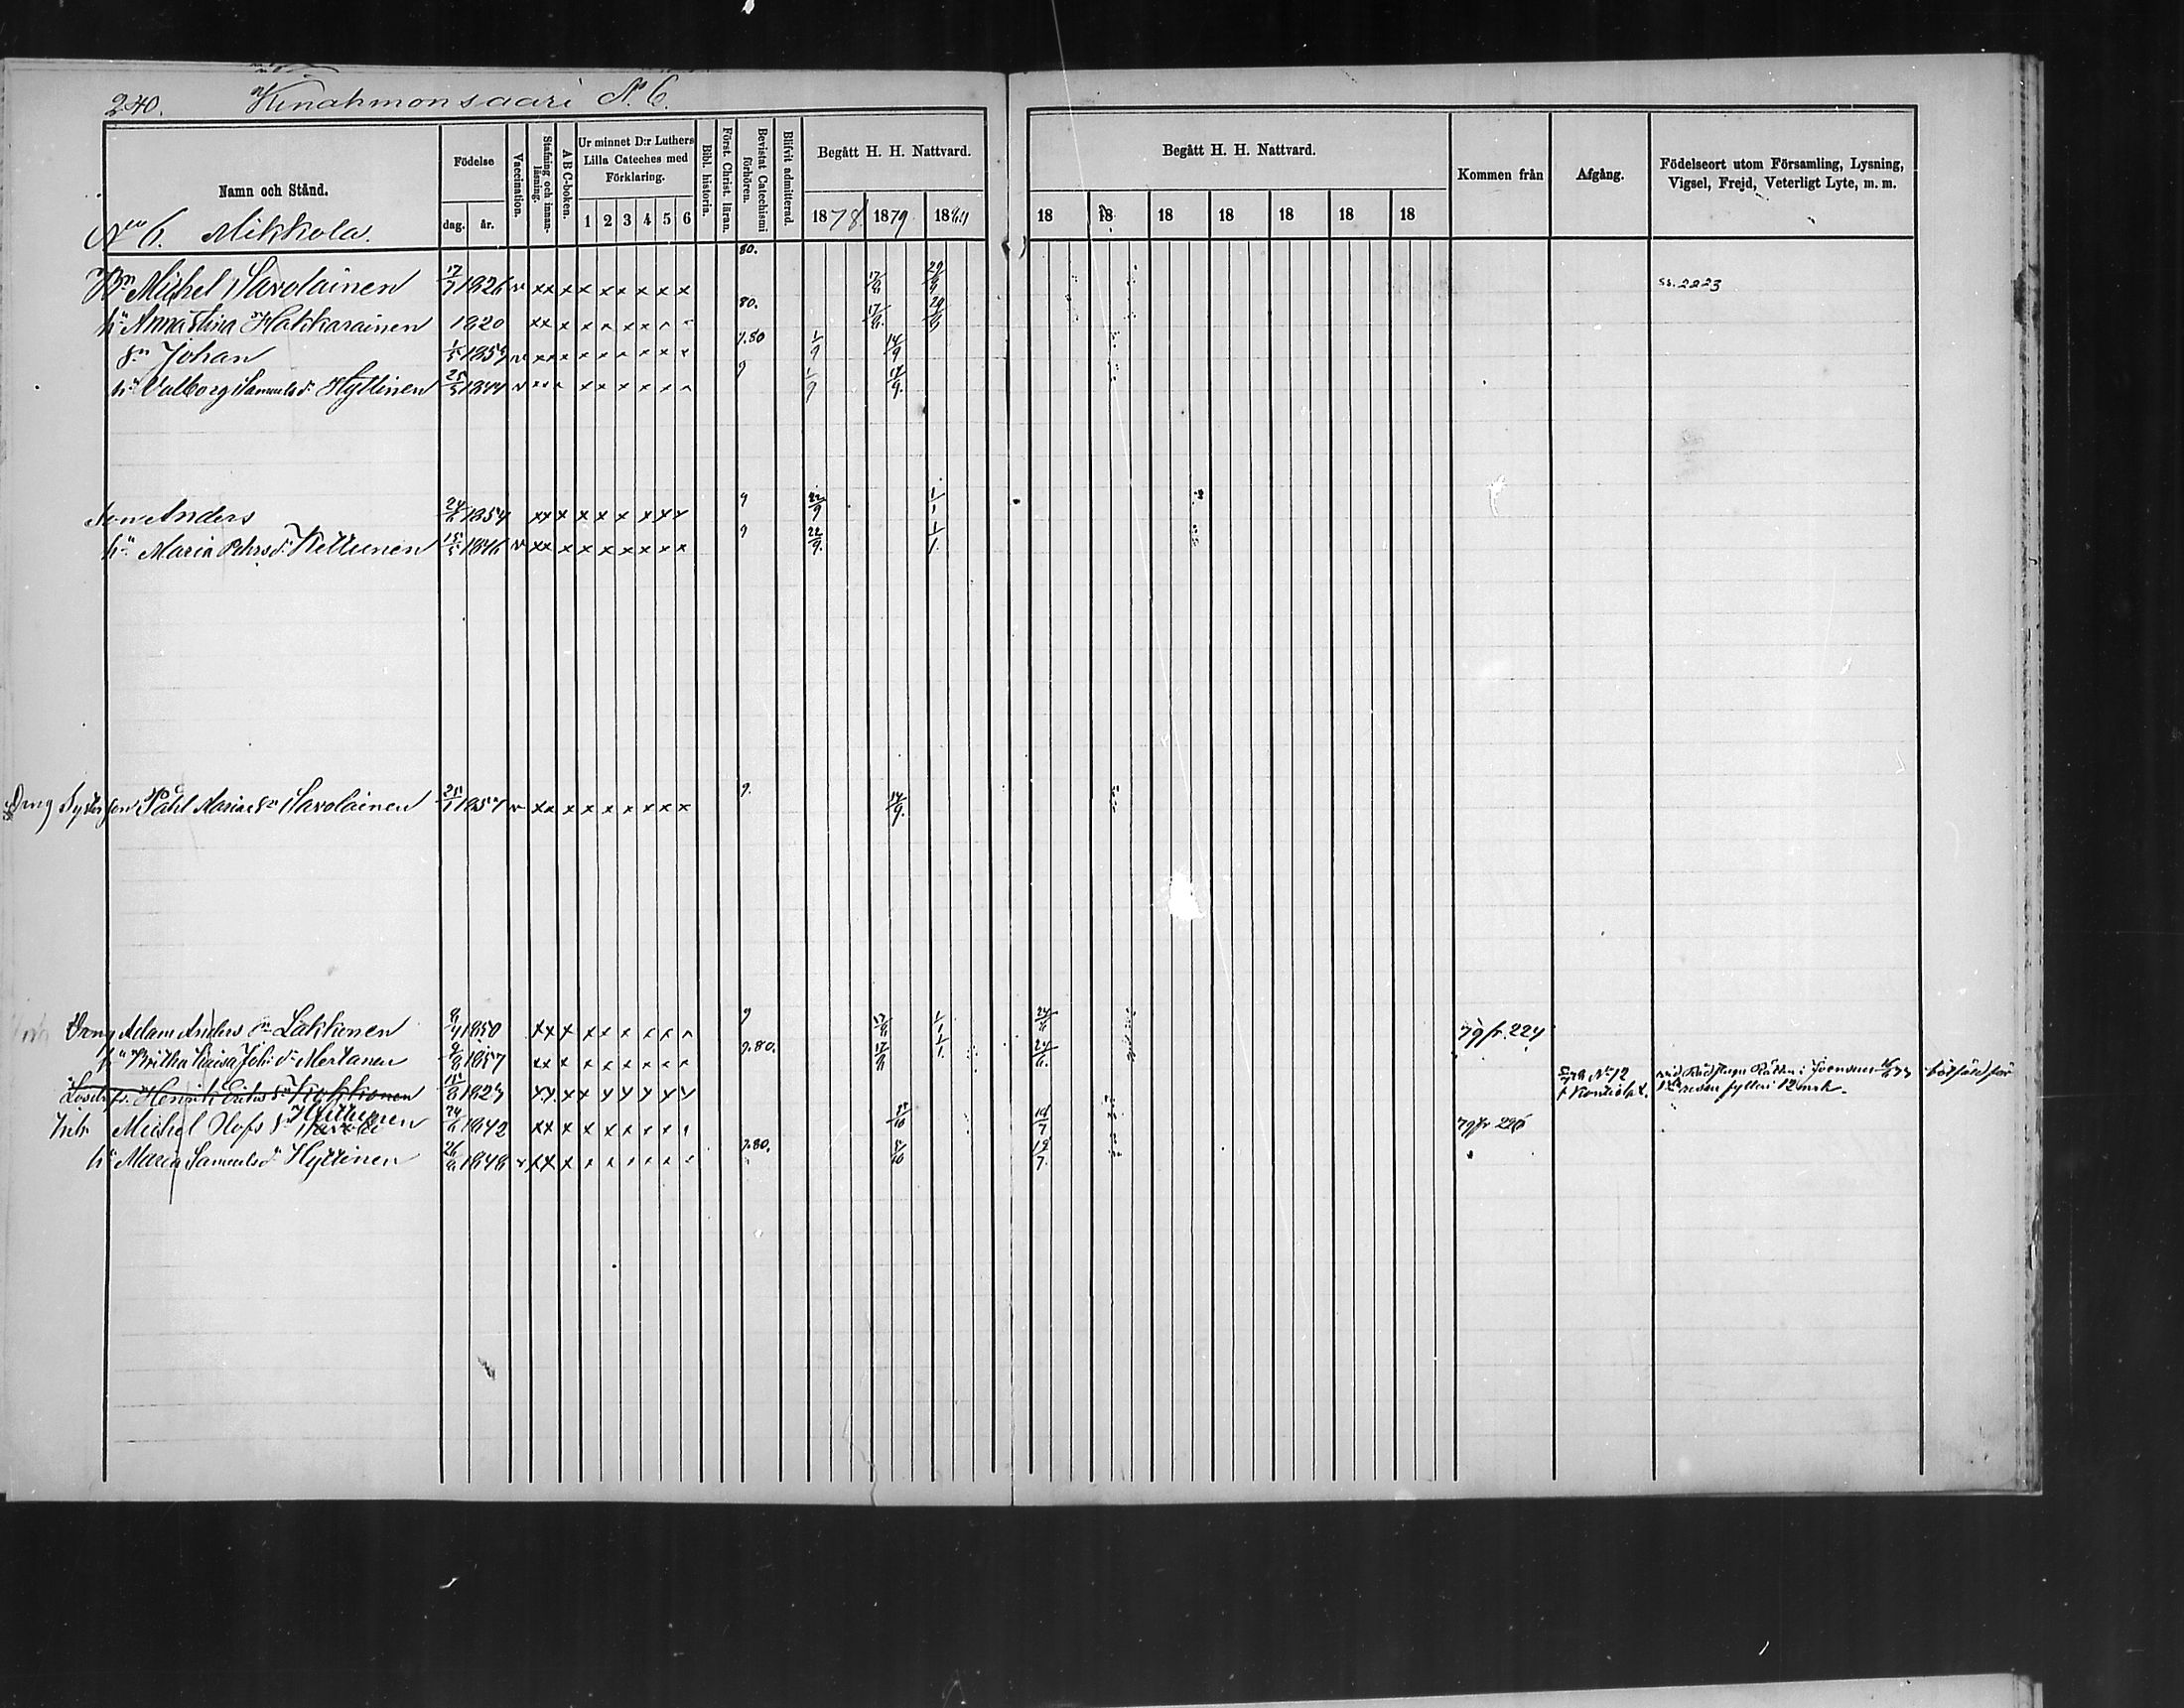 240. Kinahmonsaari N:o 6.
Namn och Stånd.
Födelse
dag. år.
Vaccination.
Stafning och innanläsning.
A B C-boken.
Ur minnet D:r Luthers Lilla Cateches med Förklaring.
1 2 3 4 5 6
Bibl. historia.
Först. Christ. läran.
Bevistat Catechismi förhören.
Blifvit admitterad.
Begått H. H. Nattvard.
1878 1879 1880
Begått H. H. Nattvard.
18 18 18 18 18 18 18
Kommen från
Afgång.
Födelseort utom Församling, Lysning, Vigsel, Frejd, Veterligt Lyte, m. m.
N:o 6. Mikkola.
80.
Bn Michel Savolainen 17/7 1826 v xx x x x x x x x 17/8 29/8 ss. 2223
h:u Anna Stina Hakkarainen 1820 xx x x x x x x x 80. 17/8 29/8
sn Johan 1/5 1859 v xx x x x x x x x 9.80 1/9 14/9
h:u Valborg Samuelsd:r Hyttinen 25/5 1844 v xx x x x x x x x 9 1/9 14/9
Son Anders 24/6 1854 xx x x x x x x x 9 22/9 1/1
h:u Maria Pehrsd:r Kettunen 15/5 1846 v xx x x x x x x x 9 22/9 1/1
Drng Påhl Mariae sn Savolainen 25/1 1857 v xx x x x x x x x 9. 14/9
Drng Adam Anders sn Lakkonen 8/4 1850 xx x x x x x x x 9 17/8 1/1 24/6 79 fr. 224
h:u Britha Caisa Joh: d:r Mertanen 9/8 1857 xx x x x x x x x 9.80. 17/8 1/1 24/6
Henrik Erics sn Kokkonen 15/8 1827 xx x x x x x x x 78 N:o 12 t. Kontiolax. vid Rådstugu Rätten i Joensuu bötfäld för 1sta resan fylleri 12 mrk.
Inh Michel Olofs sn 24/6 1842 xx x x x x x x x 5/10 19/7 79 fr 226
h:u Maria Samuelsd:r Hyttinen 26/8 1848 v xx x x x x x x x 9.80. 5/10 19/7